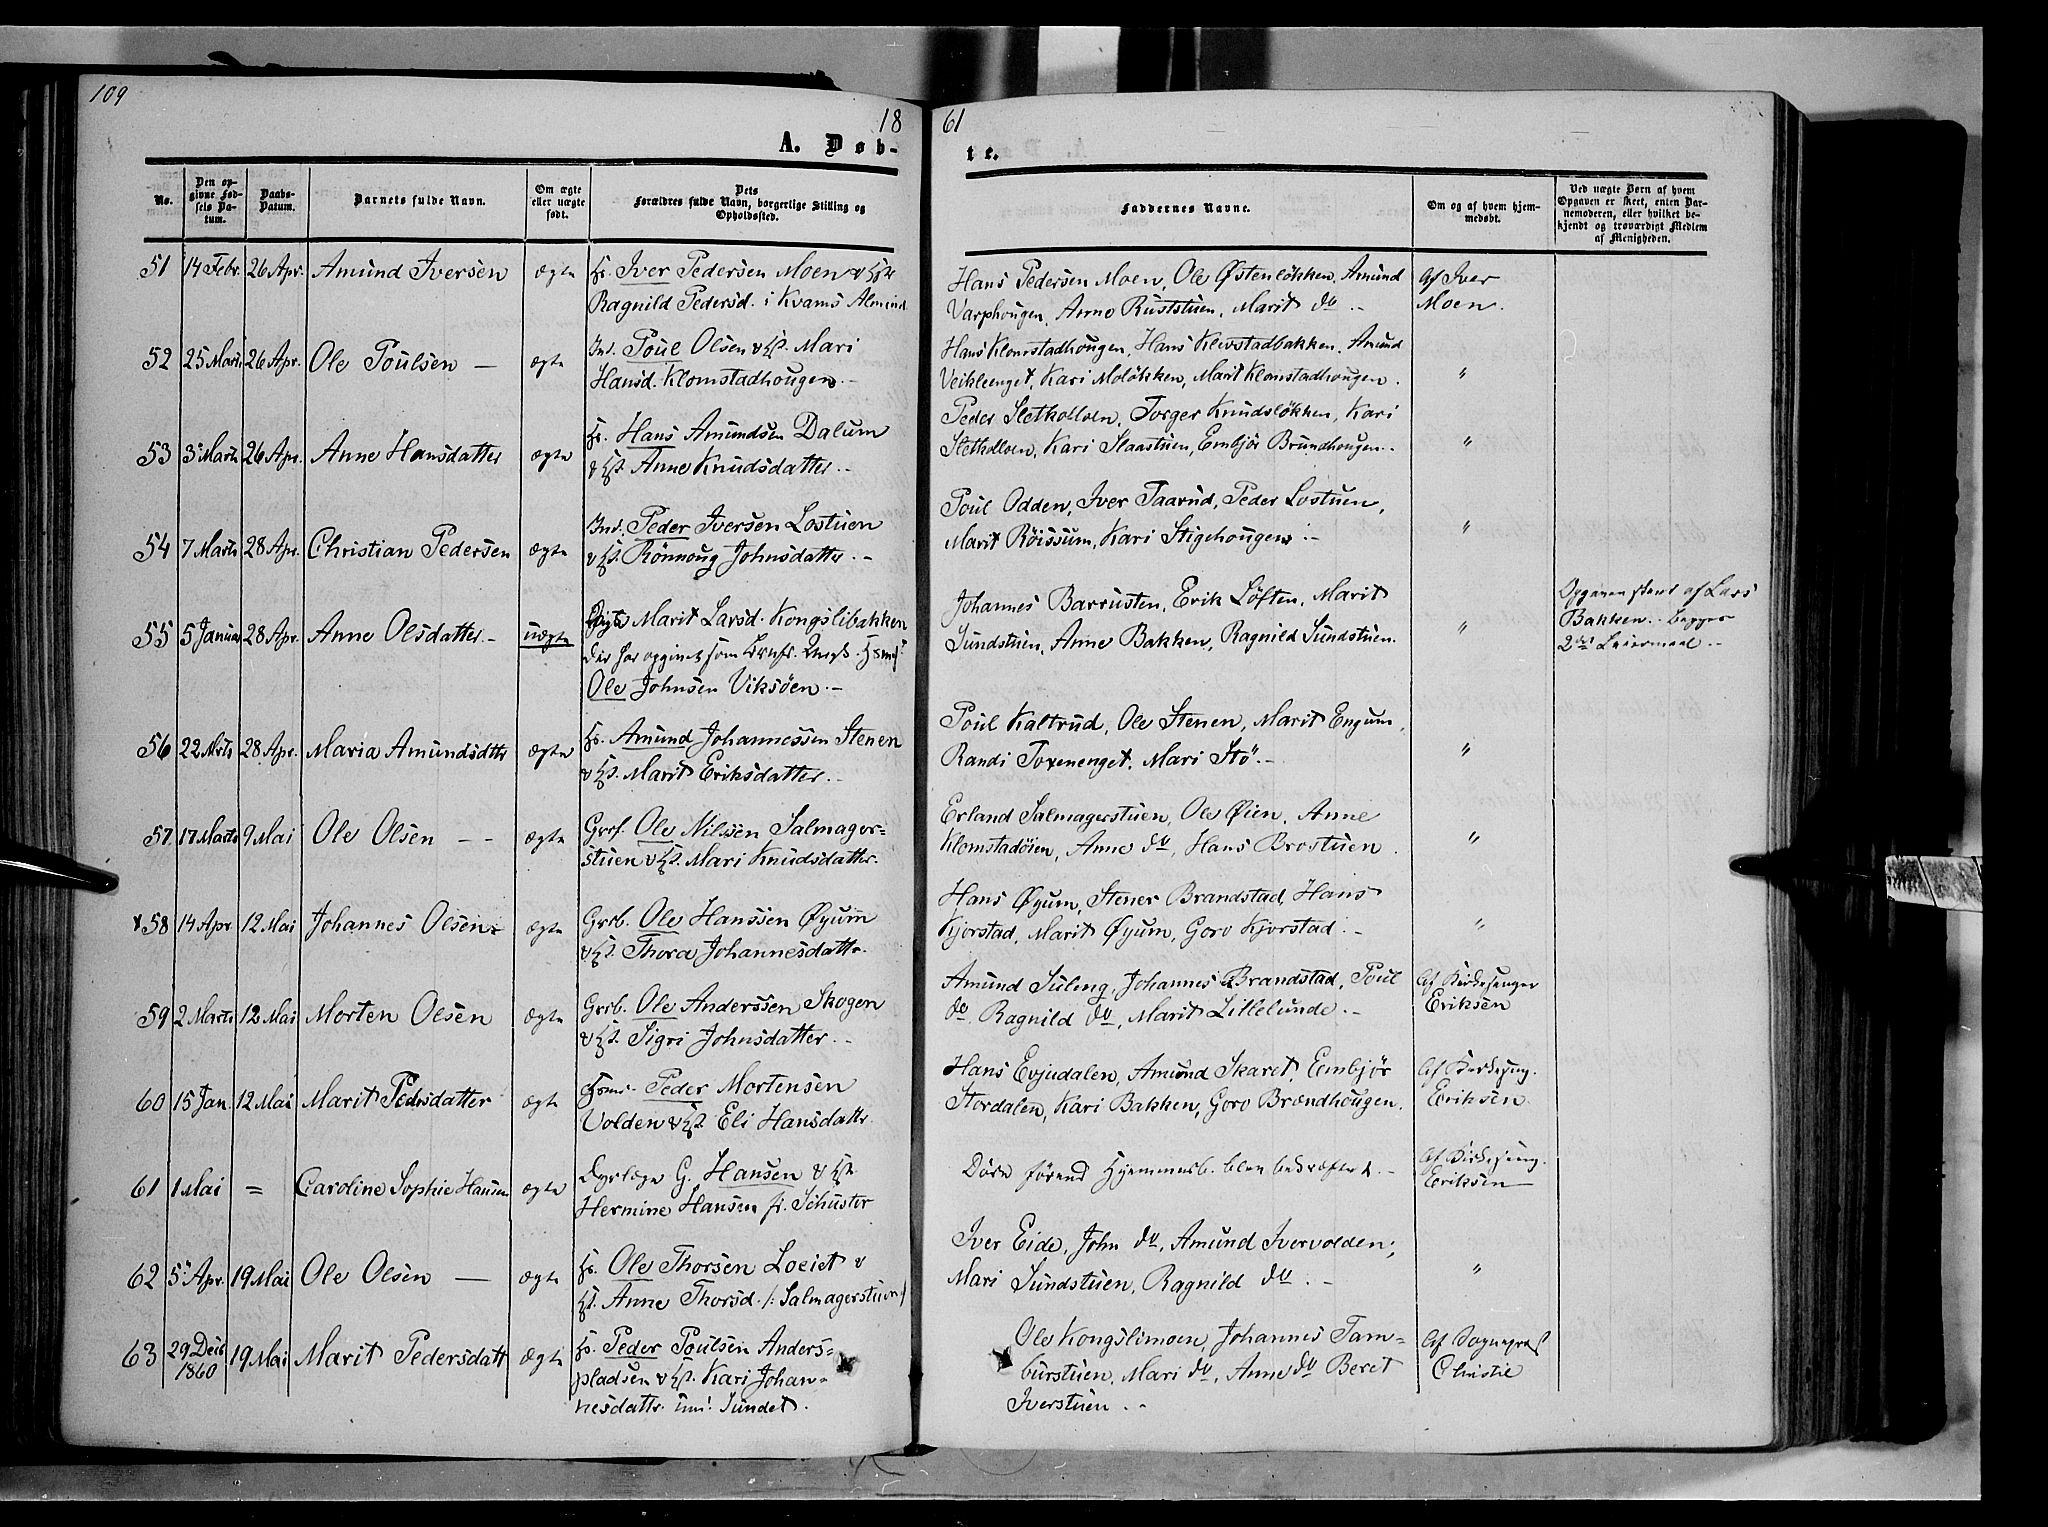 109
18
61
A. Døb-
te.
No.
Den op-
givne Fød-
sels Da-
tum.
Daabs-
Datum.
Barnets fulde Navn.
Om ægte
eller uægte
født.
Dets
Forældres fulde Navn, borgerlige Stilling og
Opholdssted.
Faddernes Navne.
Om og af hvem hjem-
medøbt.
Ved uægte Børn af hvem
Opgaven er skeet, enten Bar-
nemoderen, eller hvilket be-
kjendt og troværdigt Medlem
af Menigheden.
51 14 Febr. 26 Apr. Amund Iversen ægte
Iver Pedersen Moen
Ragnild Pedersd. i Kvams Almind
Hans Pedersen Moen, Ole Østenløkken, Amund
Varphougen, Anne Ruststuen, Marit do.-
Af Iver
Moen.
52 25 Marts 26 Apr. Ole Poulsen — ægte
Ind. Poul Olsen & Mari
Hansd. Klomstadhougen.-
Hans Klomstadhougen, Hans Klevstadbakken, Amund
Veikleenget, Kari Moløkken, Marit Klomstadhougen.
"
53 3 Marts 26 Apr. Anne Hansdatter ægte
Hans Amundsen Dalum
& Anne Knudsdatter.-
Peder Sletholloen, Torger Knudsløkken, Kari
Sletholloen, Kari Slaastuen, Embjør Brundhougen.-
"
54 7 Marts 28 Apr. Christian Pedersen ægte
Ind. Peder Iversen Lostuen
& Rønnoug Johnsdatter.-
Poul Odden, Iver Taarud, Peder Lostuen,
Marit Røissum, Kari Stigehougen.-
"
55 5 Januar 28 Apr. Anne Olsdatter- uægte
Pige Marit Larsd. Kongslibakken
der har opgivet som Brnfr. Ungk.
Ole Johnsen Viksøen.-
Johannes Barrusten, Erik Løften, Marit
Sundstuen, Anne Bakken, Ragnild Sundstuen.
"
Opgaven skeet af Lars
Bakken. Begges
2det Leiermaal.-
56 22 Mrts 28 Apr. Maria Amundsdtter ægte
Amund Johannessen Stenen
& Marit Eriksdatter.-
Poul Kaltrud, Ole Stenen, Marit Engum,
Randi Toxenenget, Mari Stö.-
"
57 17 Marts 9 Mai Ole Olsen -- ægte
Grf. Ole Nilssen Salmager-
stuen & Mari Knudsdatter.
Erland Salmagerstuen, Ole Øien, Anne
Klomstadøien, Anne do, Hans Brostuen.
"
58 14 Apr 12 Mai Johannes Olsen ægte
Grb. Ole Hanssen Øyum
& Thora Johannesdattr.
Hans Øyum, Stener Brandstad, Hans
Kjorstad, Marit Øyum, Goro Kjorstad.-
"
59 2 Marts 12 Mai Morten Olsen ægte
Grb. Ole Anderssen Skogen
& Sigri Johnsdatter.-
Amund Suleng, Johannes Brandstad, Poul
do, Ragnild do, Marit Lillelunde.-
Af Kirkesanger
Eriksen
60 15 Jan. 12 Mai Marit Pedersdatter ægte
Peder Mortensen
Volden & Eli Hansdattr.
Hans Evjudalen, Amund Skaret, Embjør
Stordalen, Kari Bakken, Goro Brændhougen.
Af Kirkesang.
Eriksen.
61 1 Mai = Caroline Sophie Hansen ægte
Dyrlæge G. Hansen &
Hermine Hansen f. Schuster
Døde førend Hjemmedb. blev bekræftet.-
Af Kirkesang.
Eriksen
62 5 Apr. 19 Mai Ole Olsen — ægte
Ole Thorsen Loeiet &
Anne Thorsd. /: Salmagerstuen:/
Iver Eide, John do, Amund Ivervolden,
Mari Sundstuen, Ragnild do.-
"
63 29 Decb 1860 19 Mai Marit Pedersdatt ægte
Peder Poulsen Anders-
pladsen & Kari Johan-
nesdattr. Sundet.
Ole Kongslimoen, Johannes Tam-
burstuen, Mari do, Anne do Beret
Iverstuen.-
Af Sognepræst
Christie